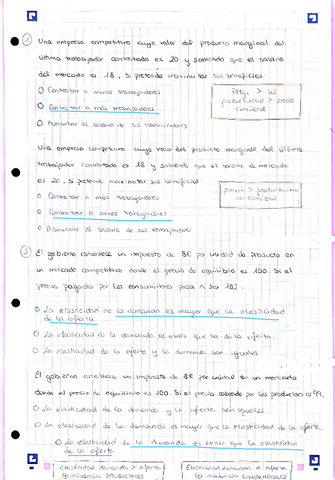 1 Una empresa competitiva cuyo valor del producto marginal del
último trabajador contratado es 20 y sabiendo que el salario
del mercado es 18, si pretende maximizar sus beneficios
O Contratar a menos trabajadores
O Contratar a más trabajadores
O Aumentar el salario de sus trabajadores
> W
productividad > precio
Una empresa competitiva cuyo valor del producto marginal del último
trabajador contratado es 18 y sabiendo que el salario de mercado
es 20, si pretende maximizar sus beneficios
O Contratar a más trabajadores
O Contratar a menos trabajadores
O Disminuir el salario de sus trabajadores
precio > productividad
2 El gobierno establece un impuesto de 8€ por unidad de producto en
un mercado competitivo donde el precio de equilibrio es 100. Si el
precio pagado por los consumidores pasa a ser 102...
O La elasticidad de la demanda es mayor que la elasticidad
de la oferta
O La elasticidad de la demanda es menor que la de la oferta.
O La elasticidad de la oferta y la demanda son iguales
El gobierno establece un impuesto de 8€ por unidad en un mercado
donde el precio de equilibrio es 100. Si el precio cobrado por los productores es 99,
O La elasticidad de la demanda y la oferta son iguales
O La elasticidad de la demanda es mayor que la elasticidad de la oferta.
O La elasticidad de la demanda es menor que la elasticidad
de la oferta
Elasticidad demanda > oferta
incidencia productores
Elasticidad demanda < oferta
incidencia consumidores